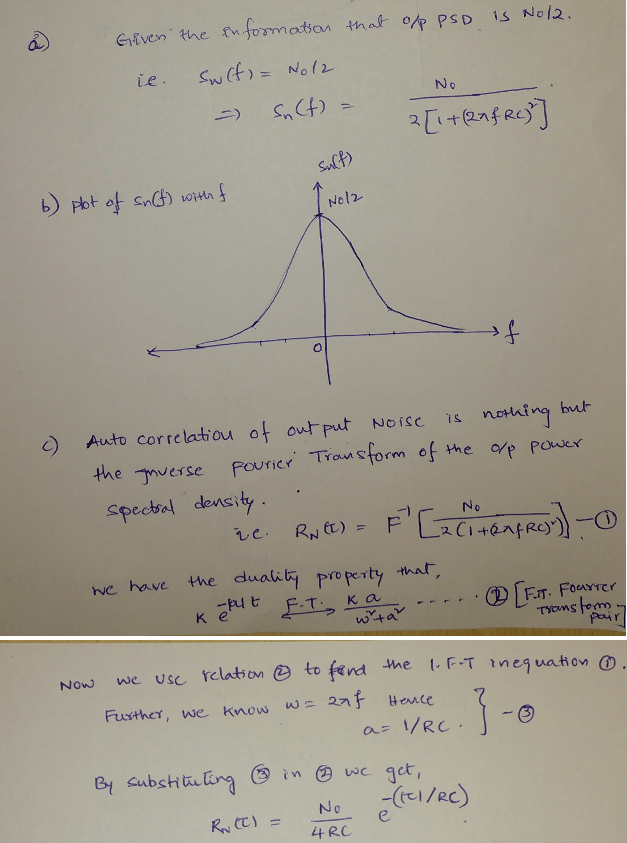 a) Given the information that o/p PSD is No/2.
i.e. Sw(f) = No/2
⇒ Sn(f) = No / 2[1+(2πfRC)²]
b) plot of Sn(f) with f
Sn(f)
No/2
0
f
c) Auto correlation of output Noise is nothing but
the Inverse Fourier Transform of the o/p power
spectral density.
i.e. RN(τ) = F⁻¹[No / 2(1+(2πfRC)²)] - ①
we have the duality property that,
F.T. K a / w²+a² ..... ② [F.T. Fourier
Transform pair]
Now we use relation ② to find the I.F.T inequation ①.
Further, we know w = 2πf Hence
a = 1/RC. } - ③
By substituting ③ in ② we get,
RN(τ) = No / 4RC e^-(|τ|/RC)